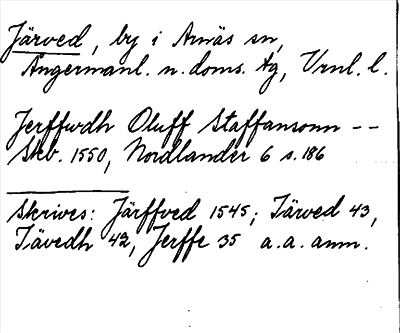 Järved, by i Arnäs sn,
Ångermanl. n. doms. tg, Vrnl. l.
Jerffwdh Oluff Staffansonn --
Skb. 1550, Nordlander 6 s. 186
Skrives: Järffved 1545; Järved 43,
Jävedh 42, Jerffe 35 a.a. anm.